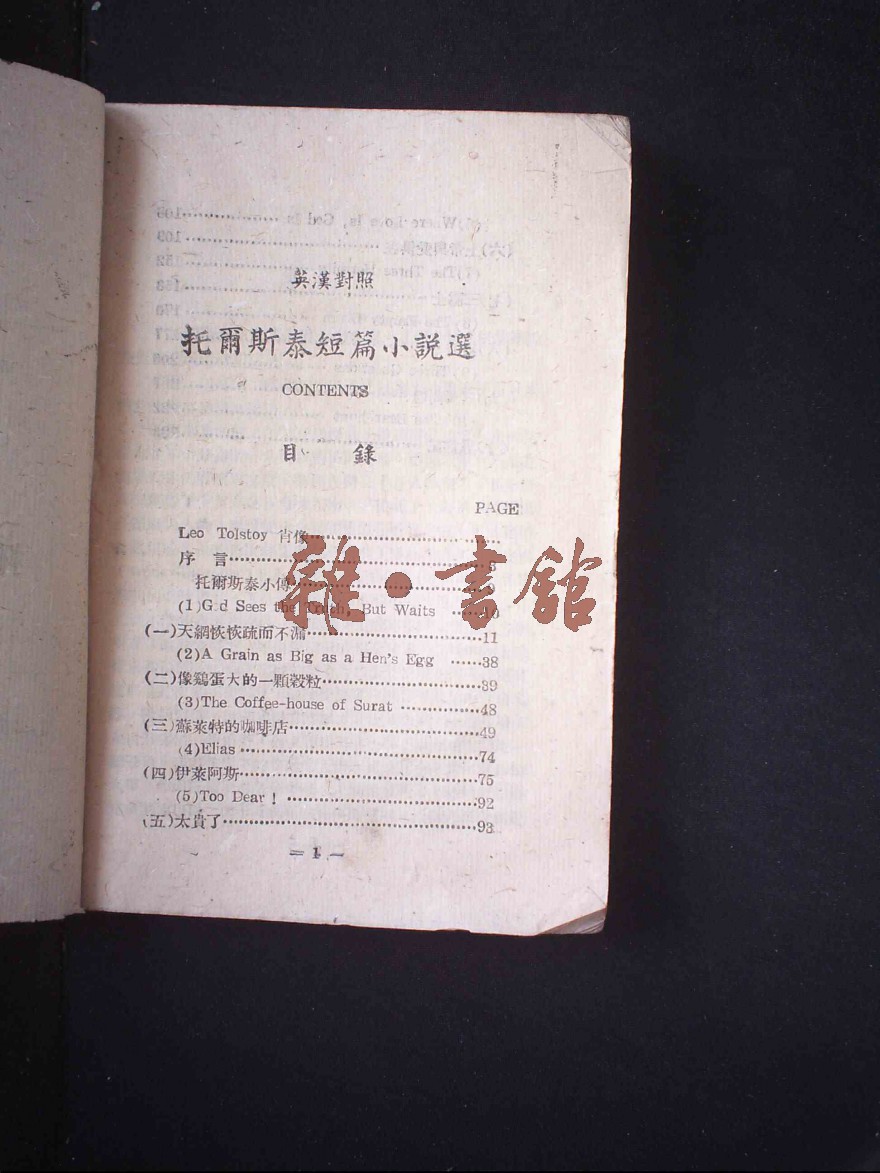 英漢對照
托爾斯泰短篇小説選
CONTENTS
目 錄
PAGE
Leo Tolstoy 肖像
序 言
托爾斯泰小傳
(1)God Sees the Truth, But Waits 10
(一)天網恢恢疏而不漏 11
(2)A Grain as Big as a Hen's Egg 38
(二)像鷄蛋大的一顆穀粒 39
(3)The Coffee-house of Surat 48
(三)蘇萊特的咖啡店 49
(4)Elias 74
(四)伊萊阿斯 75
(5)Too Dear! 92
(五)太貴了 93
= 1 —
雜·書館